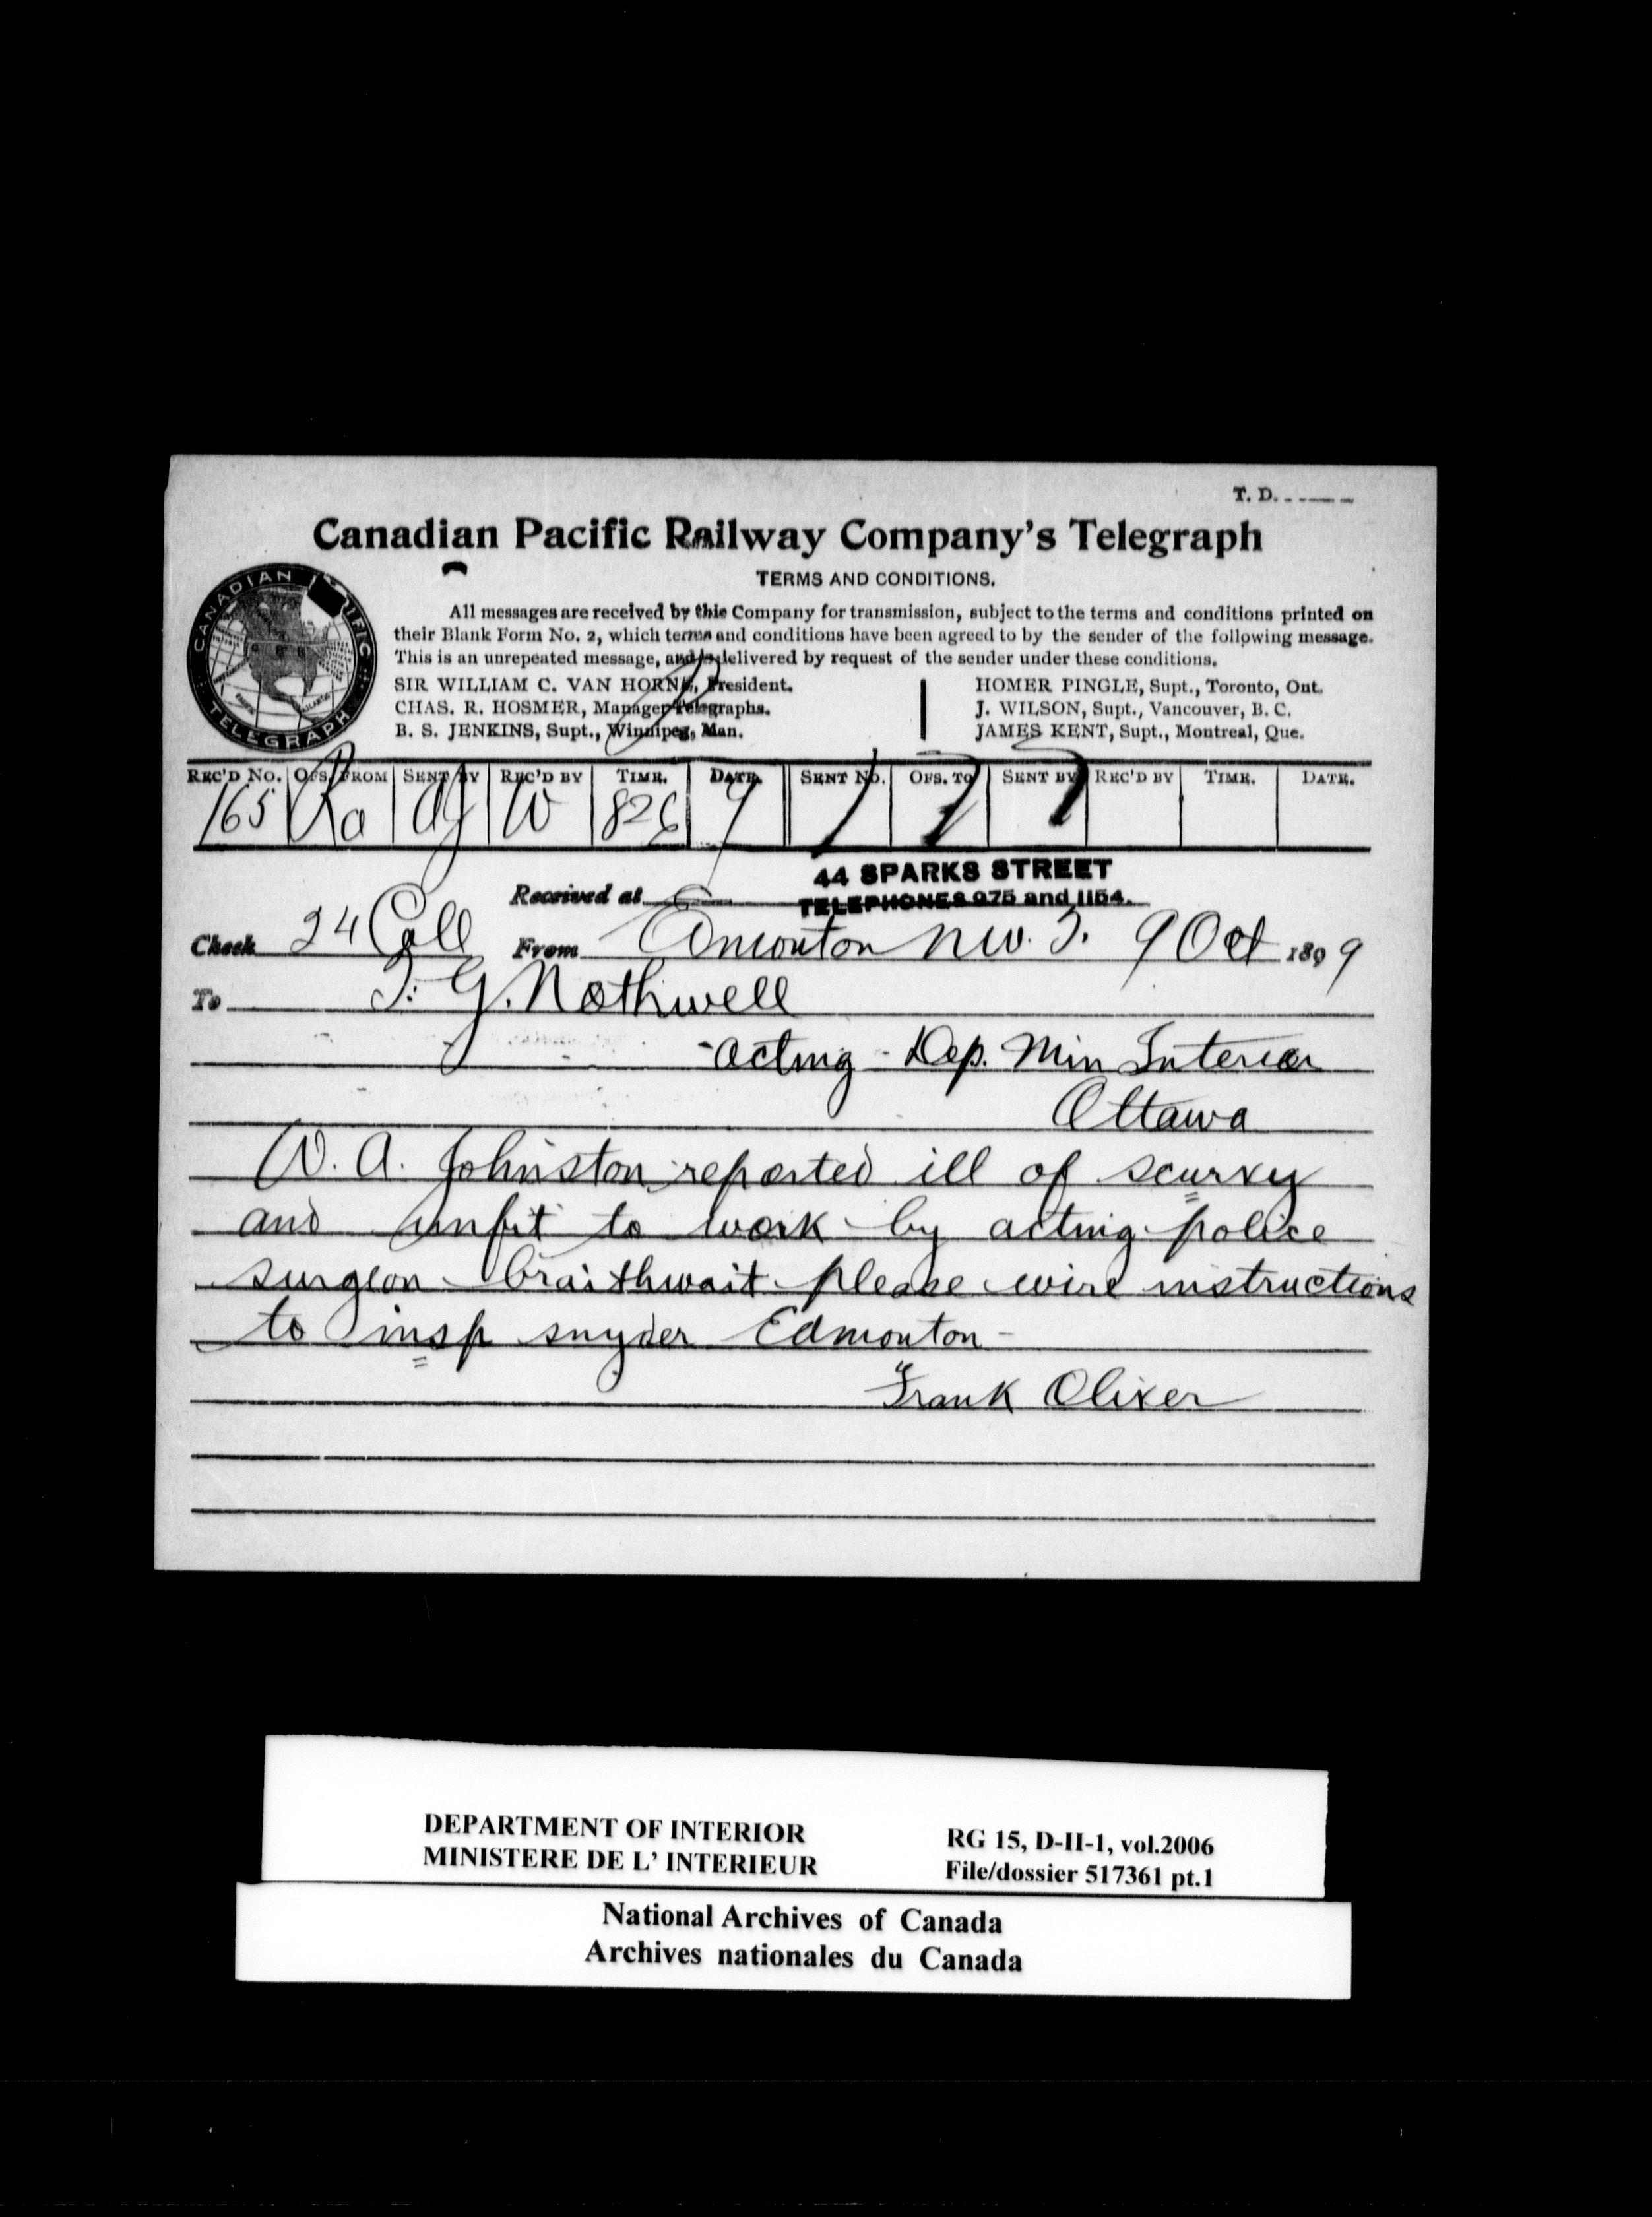 T. D.
Canadian Pacific Railway Company's Telegraph
TERMS AND CONDITIONS.
All messages are received by this Company for transmission, subject to the terms and conditions printed on
their Blank Form No. 2, which terms and conditions have been agreed to by the sender of the following message.
This is an unrepeated message, and is delivered by request of the sender under these conditions.
SIR WILLIAM C. VAN HORNE, President.
CHAS. R. HOSMER, Manager Telegraphs.
B. S. JENKINS, Supt., Winnipeg, Man.
HOMER PINGLE, Supt., Toronto, Ont.
J. WILSON, Supt., Vancouver, B. C.
JAMES KENT, Supt., Montreal, Que.
CANADIAN PACIFIC TELEGRAPH
REC'D No. OFS. FROM SENT BY REC'D BY TIME. DATE. SENT No. OFS. TO SENT BY REC'D BY TIME. DATE.
165 Ra W 9
44 SPARKS STREET
Received at TELEPHONES 975 and 1154.
Check 24 Coll From Edmonton NW. T. 9 Oct 1899
To T. G. Nothwell
acting Dep. Min Interior
Ottawa
W. A. Johnston reported ill of scurvy
and unfit to work by acting police
surgeon braithwait please wire instructions
to insp snyder Edmonton -
Frank Oliver
DEPARTMENT OF INTERIOR
MINISTERE DE L' INTERIEUR
RG 15, D-II-1, vol.2006
File/dossier 517361 pt.1
National Archives of Canada
Archives nationales du Canada